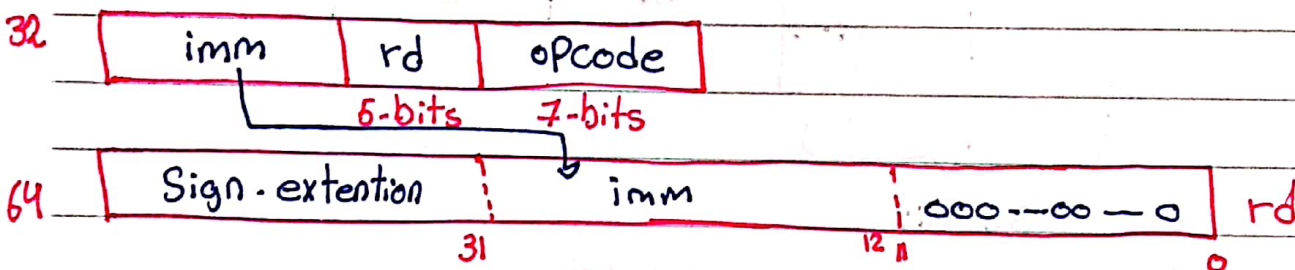 32 imm rd opcode
5-bits 7-bits
64 Sign-extention imm 000---00-0 rd
31 12 11 0